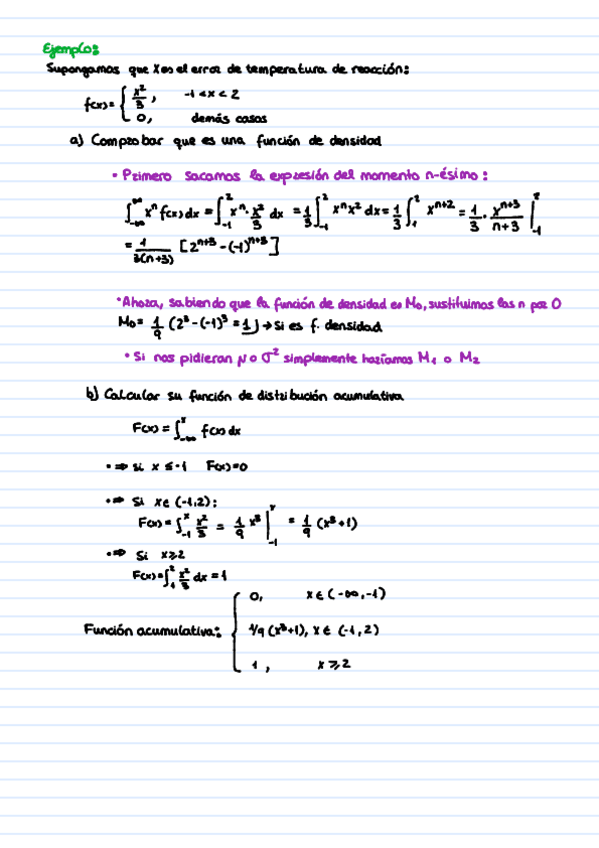 Ejemplo:
Supongamos que X es el error de temperatura de reacción:
f(x) = { x²/3, -1 < x < 2
0, demás casos
a) Comprobar que es una función de densidad
• Primero sacamos la expresión del momento n-ésimo:
∫_{-∞}^{∞} xⁿ f(x) dx = ∫_{-1}^{2} xⁿ · x²/3 dx = 1/3 ∫_{-1}^{2} xⁿx² dx = 1/3 ∫_{1}^{2} x^{n+2} = 1/3 · x^{n+3}/(n+3) |_{-1}^{2}
= 1/(3(n+3)) [2^{n+3} - (-1)^{n+3}]
• Ahora, sabiendo que la función de densidad es M₀, sustituimos las n por 0
M₀ = 1/9 (2³ - (-1)³ = 1) → Si es f. densidad
• Si nos pidieran μ o σ² simplemente haríamos M₁ o M₂
b) Calcular su función de distribución acumulativa
F(x) = ∫_{-∞}^{x} f(x) dx
• ⇒ si x ≤ -1 F(x)=0
• ⇒ Si x ∈ (-1,2):
F(x) = ∫_{-1}^{x} x²/3 = 1/9 x³ |_{-1}^{x} = 1/9 (x³+1)
• ⇒ Si x≥2
F(x) = ∫_{1}^{2} x²/3 dx = 1
0, x ∈ (-∞,-1)
Función acumulativa: { 1/9 (x³+1), x ∈ (-1,2)
1, x ≥ 2